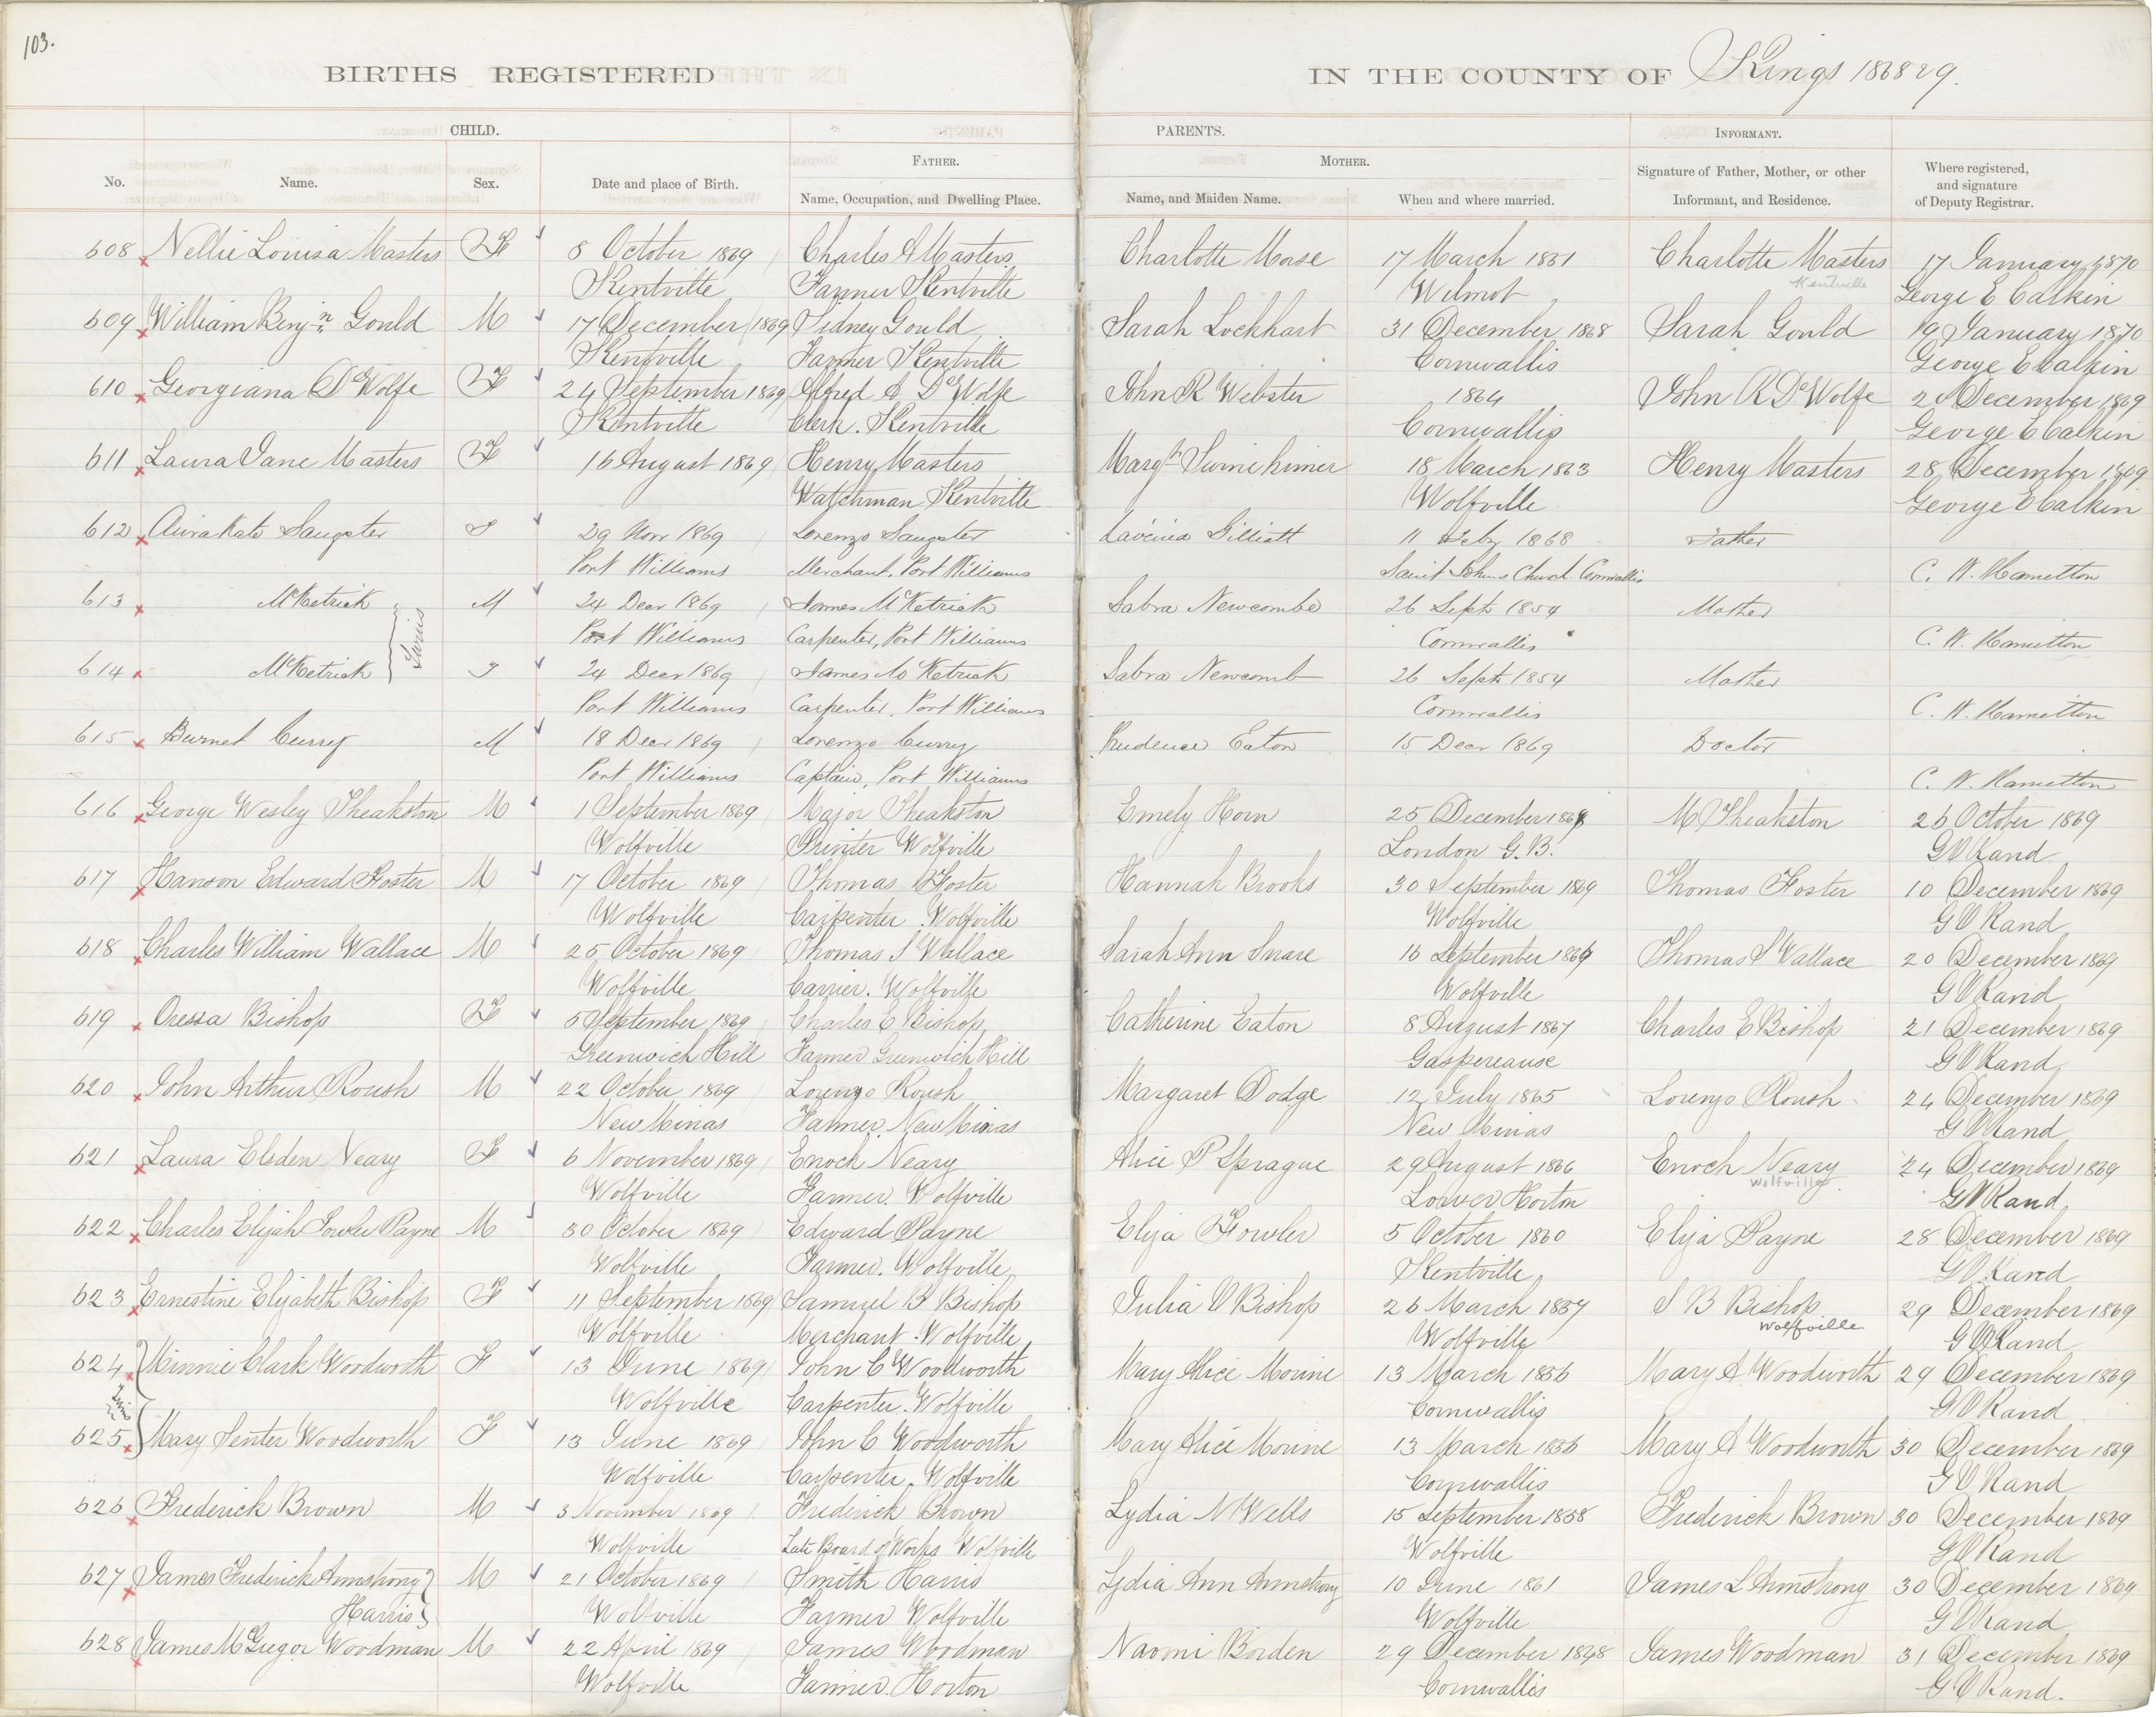 103.
BIRTHS REGISTERED
IN THE COUNTY OF Kings 1868 & 9.
CHILD.
PARENTS.
INFORMANT.
FATHER.
MOTHER.
No.
Name.
Sex.
Date and place of Birth.
Name, Occupation, and Dwelling Place.
Name, and Maiden Name.
When and where married.
Signature of Father, Mother, or other
Informant, and Residence.
Where registered,
and signature
of Deputy Registrar.
608 Nellie Louisa Masters F 8 October 1869 Charles A Masters Charlotte Morse 17 March 1851 Charlotte Masters 17 January 1870
Kentville Farmer Kentville Wilmot Kentville George E Calkin
609 William Benjn Gould M 17 December 1869 Sidney Gould Sarah Lockhart 31 December 1868 Sarah Gould 19 January 1870
Kentville Farmer Kentville Cornwallis George E Calkin
610 Georgiana DeWolfe F 24 September 1869 Alfred A DeWolfe John R Webster 1864 John R DeWolfe 20 December 1869
Kentville Clerk. Kentville Cornwallis George E Calkin
611 Laura Jane Masters F 16 August 1869 Henry Masters Margt 18 March 1863 Henry Masters 28 December 1869
Watchman Kentville Wolfville George E Calkin
612 Kate Sangster F 29 Novr 1869 Lorenzo Sangster Lavinia Gilliatt 11 Feby 1868 Father
Port Williams Merchant, Port Williams Saint Johns Church Cornwallis C. W. Hamilton
613 McKetrick M 24 Decr 1869 James McKetrick Sabra Newcombe 26 Sept 1854 Mother
Twins
Port Williams Carpenter, Port Williams Cornwallis C. W. Hamilton
614 McKetrick F 24 Decr 1869 James McKetrick Sabra Newcomb 26 Sept 1854 Mother
Port Williams Carpenter, Port Williams Cornwallis C. W. Hamilton
615 Burnet Curry M 18 Decr 1869 Lorenzo Curry Prudence Eaton 15 Decr 1869 Doctor
Port Williams Captain, Port Williams C. W. Hamilton
616 George Wesley Theakston M 1 September 1869 Major Theakston Emely Horn 25 December M Theakston 26 October 1869
Wolfville Printer Wolfville London G.B. G V Rand
617 Hanson Edward Foster M 17 October 1869 Thomas Foster Hannah Brooks 30 September 1869 Thomas Foster 10 December 1869
Wolfville Carpenter. Wolfville Wolfville G V Rand
618 Charles William Wallace M 25 October 1869 Thomas S Wallace Sarah Ann Snare 16 September Thomas S Wallace 20 December 1869
Wolfville Carrier. Wolfville Wolfville G V Rand
619 Oressa Bishop F 5 September 1869 Charles E Bishop Catherine Eaton 8 August 1867 Charles E Bishop 21 December 1869
Greenwich Hill Farmer Greenwich Hill Gaspereause G V Rand
620 John Arthur Roush M 22 October 1869 Lorenzo Roush Margaret Dodge 12 July 1865 Lorenzo Roush 24 December 1869
New Minas Farmer. New Minas New Minas G V Rand
621 Laura Elsden Neary F 6 November 1869 Enoch Neary Alice P Sprague 29 August 1866 Enoch Neary 24 December 1869
Wolfville Farmer. Wolfville Lower Horton Wolfville G V Rand
622 Charles Elijah Fowler Payne M 30 October 1869 Edward Payne Eliza Fowler 5 October 1860 Eliza Payne 28 December 1869
Wolfville Farmer. Wolfville Kentville G V Rand
623 Ernestine Elizabeth Bishop F 11 September 1869 Samuel B Bishop Julia V Bishop 26 March 1859 S B Bishop 29 December 1869
Wolfville Merchant. Wolfville Wolfville Wolfville G V Rand
624 Minnie Clark Woodworth F 13 June 1869 John C Woodworth Mary Alice Morine 13 March 1856 Mary A Woodworth 29 December 1869
Wolfville Carpenter. Wolfville Cornwallis G V Rand
Twins
625 Mary Senter Woodworth F 13 June 1869 John C Woodworth Mary Alice Morine 13 March 1856 Mary A Woodworth 30 December 1869
Wolfville Carpenter. Wolfville Cornwallis G V Rand
626 Frederick Brown M 3 November 1869 Frederick Brown Lydia N Wells 15 September 1858 Frederick Brown 30 December 1869
Wolfville Late Board of Works Wolfville Wolfville G V Rand
627 James Frederick Armstrong M 21 October 1869 Smith Harris Lydia Ann Armstrong 10 June 1861 James L Armstrong 30 December 1869
Harris Wolfville Farmer Wolfville Wolfville G V Rand
628 James McGregor Woodman M 22 April 1869 James Woodman Naomi Borden 29 December 1848 James Woodman 31 December 1869
Wolfville Farmer. Horton Cornwallis G V Rand.